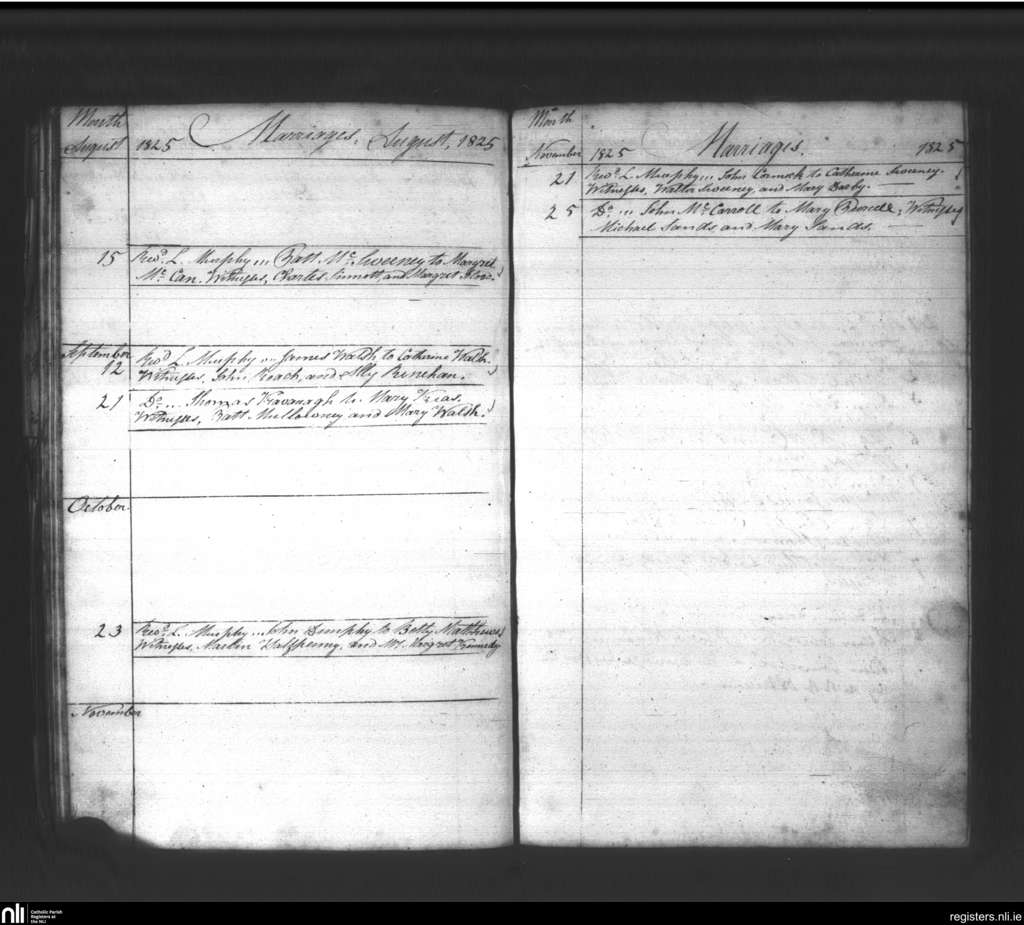 Month
August 1825 Marriages. August, 1825
15 Revd. L. Murphy... Patt Mc. Sweeney to Margret
Mc. Can. Witnesses, Charles Sinnott, and Margret
September
12 Revd. L. Murphy... James Walsh to Catherine Walsh.
Witnesses, John Roach, and Ally Renehan.
21 Do... Thomas Kavanagh to Mary
Witnesses, Patt. Mullowney and Mary Walsh.
October.
23 Revd. L. Murphy... John Dunphy to Betty Matthews
Witnesses, Martin Halfpenny, and Margret Kennedy
November
Month
November 1825 Marriages. 1825
21 Revd. L. Murphy... John to Catherine Sweeney.
Witnesses, Walter Sweeney, and Mary Darby.
25 Do... John Mc. Carroll to Mary Witnesses
Michael Sands and Mary Sands.
nli Catholic Parish
Registers at
the NLI
registers.nli.ie